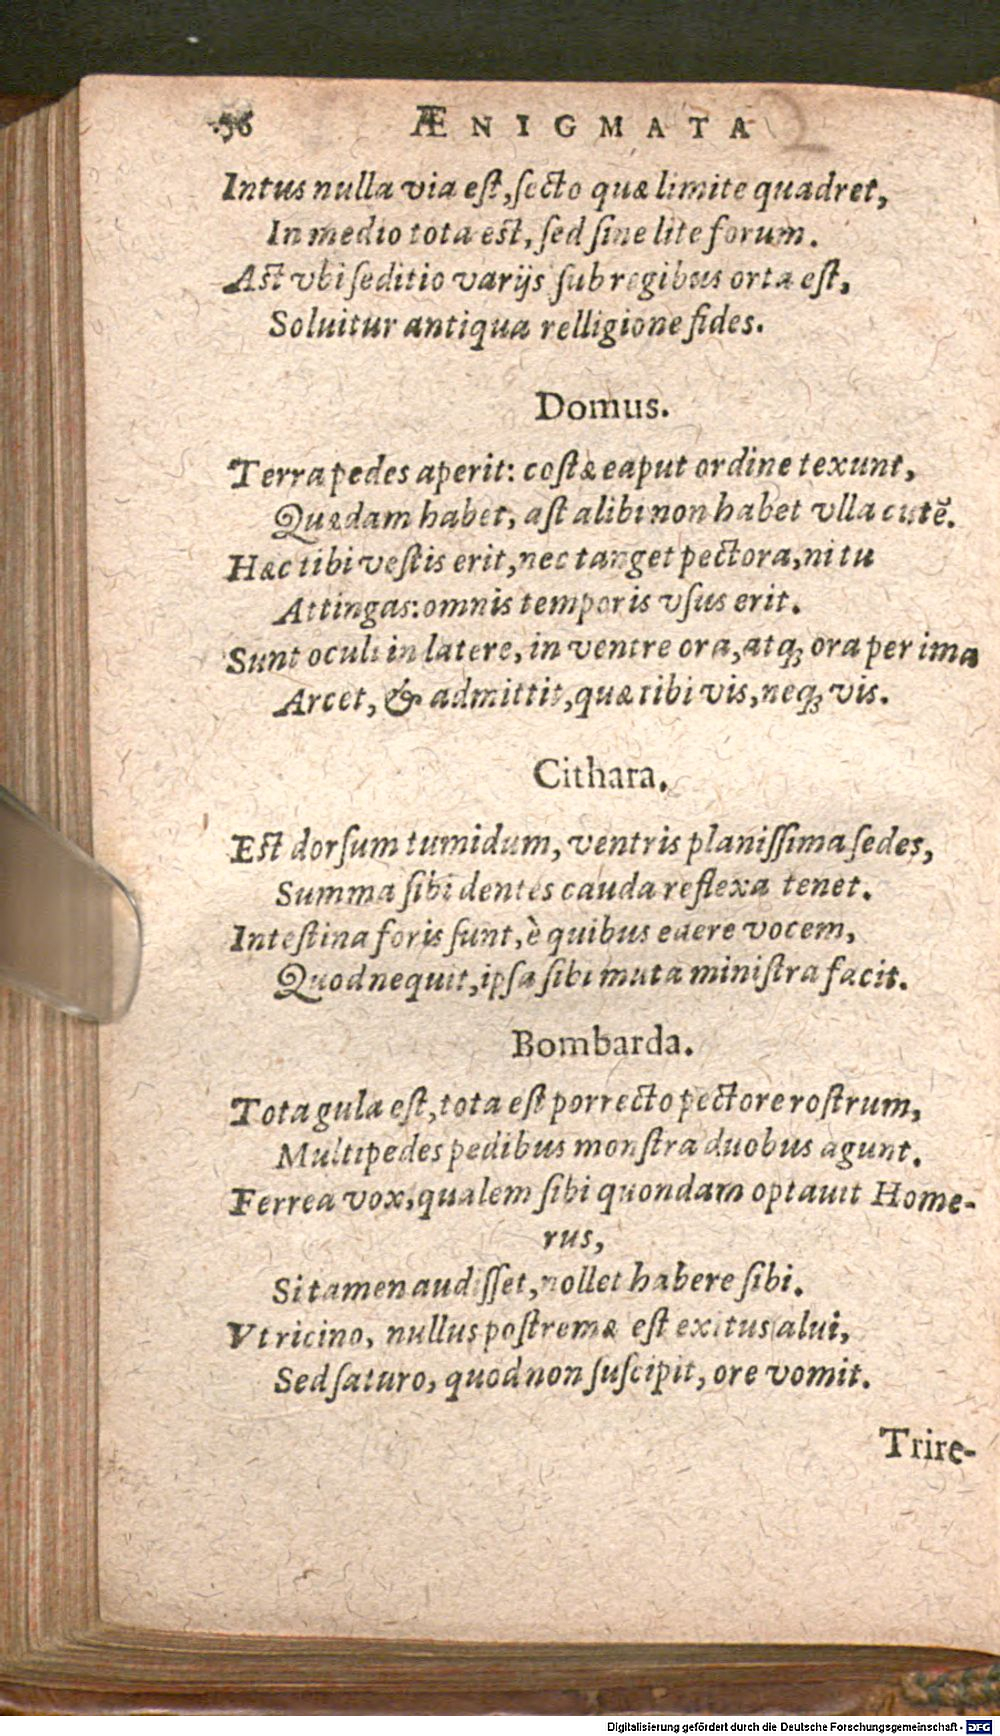 56 ÆNIGMATA
Intus nulla via eſt, ſecto quæ limite quadret,
In medio tota eſt, ſed ſine lite forum.
Aſt vbi ſeditio varijs ſub regibus orta eſt,
Soluitur antiqua relligione fides.
Domus.
Terra pedes aperit: coſtæ eaput ordine texunt,
Quædam habet, aſt alibi non habet vlla cutē.
Hæc tibi veſtis erit, nec tanget pectora, ni tu
Attingas: omnis temporis vſus erit.
Sunt oculi in latere, in ventre ora, atq; ora per ima
Arcet, & admittit, quæ tibi vis, neq; vis.
Cithara.
Eſt dorſum tumidum, ventris planiſſima ſedes,
Summa ſibi dentes cauda reflexa tenet.
Inteſtina foris ſunt, è quibus edere vocem,
Quod nequit, ipſa ſibi muta miniſtra facit.
Bombarda.
Tota gula eſt, tota eſt porrecto pectore roſtrum,
Multipedes pedibus monſtra duobus agunt.
Ferrea vox, qualem ſibi quondam optauit Home-
rus,
Si tamen audiſſet, nollet habere ſibi.
Vt ricino, nullus poſtremæ eſt exitus alui,
Sed ſaturo, quod non ſuſcipit, ore vomit.
Trire-
Digitalisierung gefördert durch die Deutsche Forschungsgemeinschaft - DFG